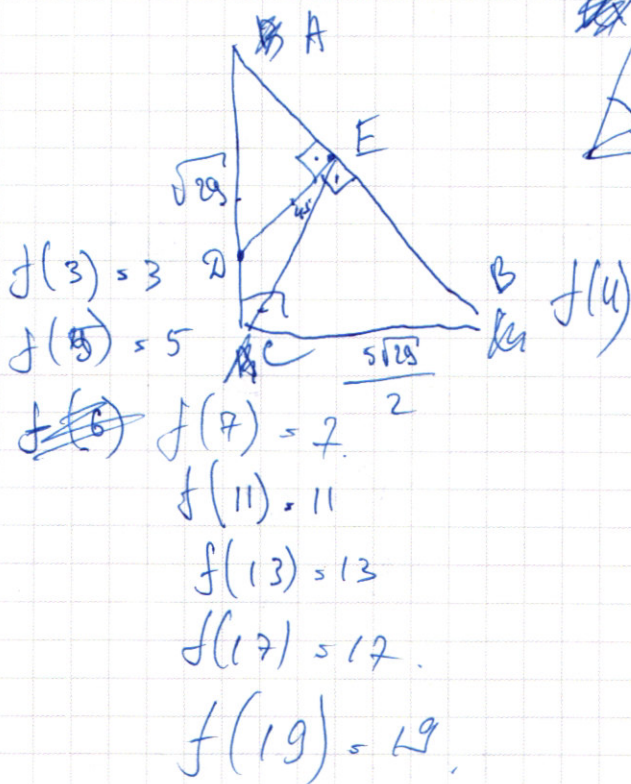 A
E
√29
45
D
B
C
5√29
2
f(3) = 3
f(5) = 5
f(4)
f(6)
f(7) = 7.
f(11) = 11
f(13) = 13
f(17) = 17.
f(19) = 19.